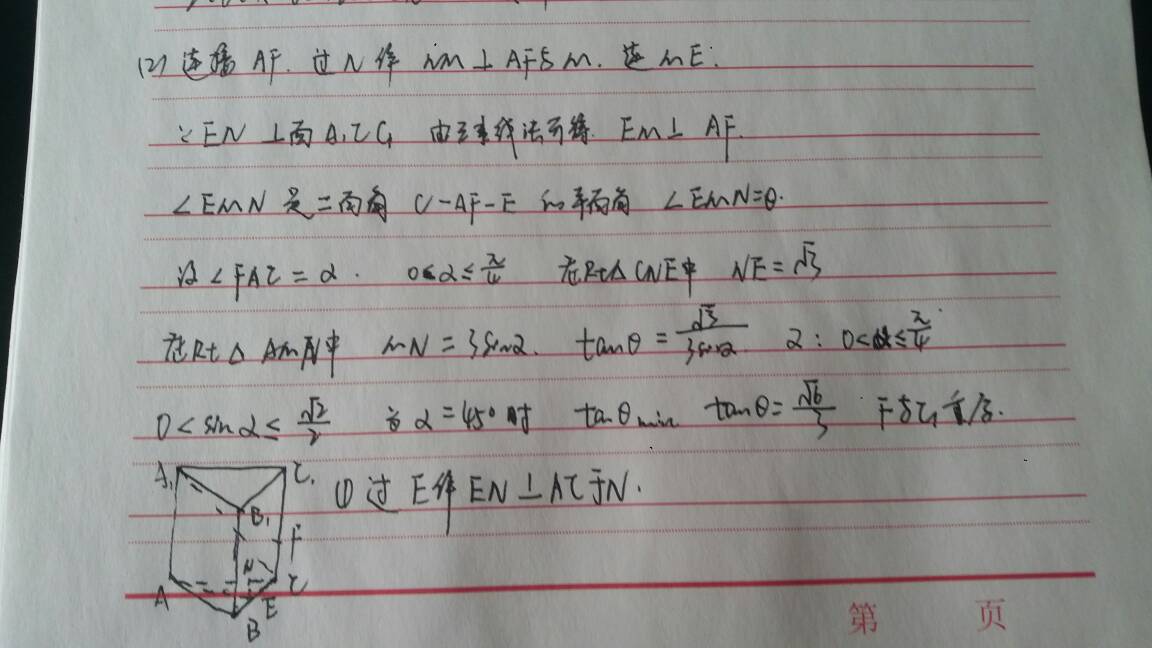 (2) 连接 AF. 过 N 作 NM⊥AF与M. 连ME.
∵EN⊥面A₁CC₁ 由三垂线法可得. EM⊥AF.
∠EMN 是二面角 C-AF-E 的平面角 ∠EMN=θ.
设∠FAC=α. 0<α≤π/4 在Rt△CNE中 NE=√3
在Rt△AMN中 MN=3sinα. tanθ=√3/3sinα α:0<α≤π/4
0<sinα≤√2/2 当α=45°时 tanθmin tanθ=√6/3 F与C₁重合.
(1) 过E作EN⊥AC于N.
A₁ C₁
B₁
F
N
A C
E
B
第 页